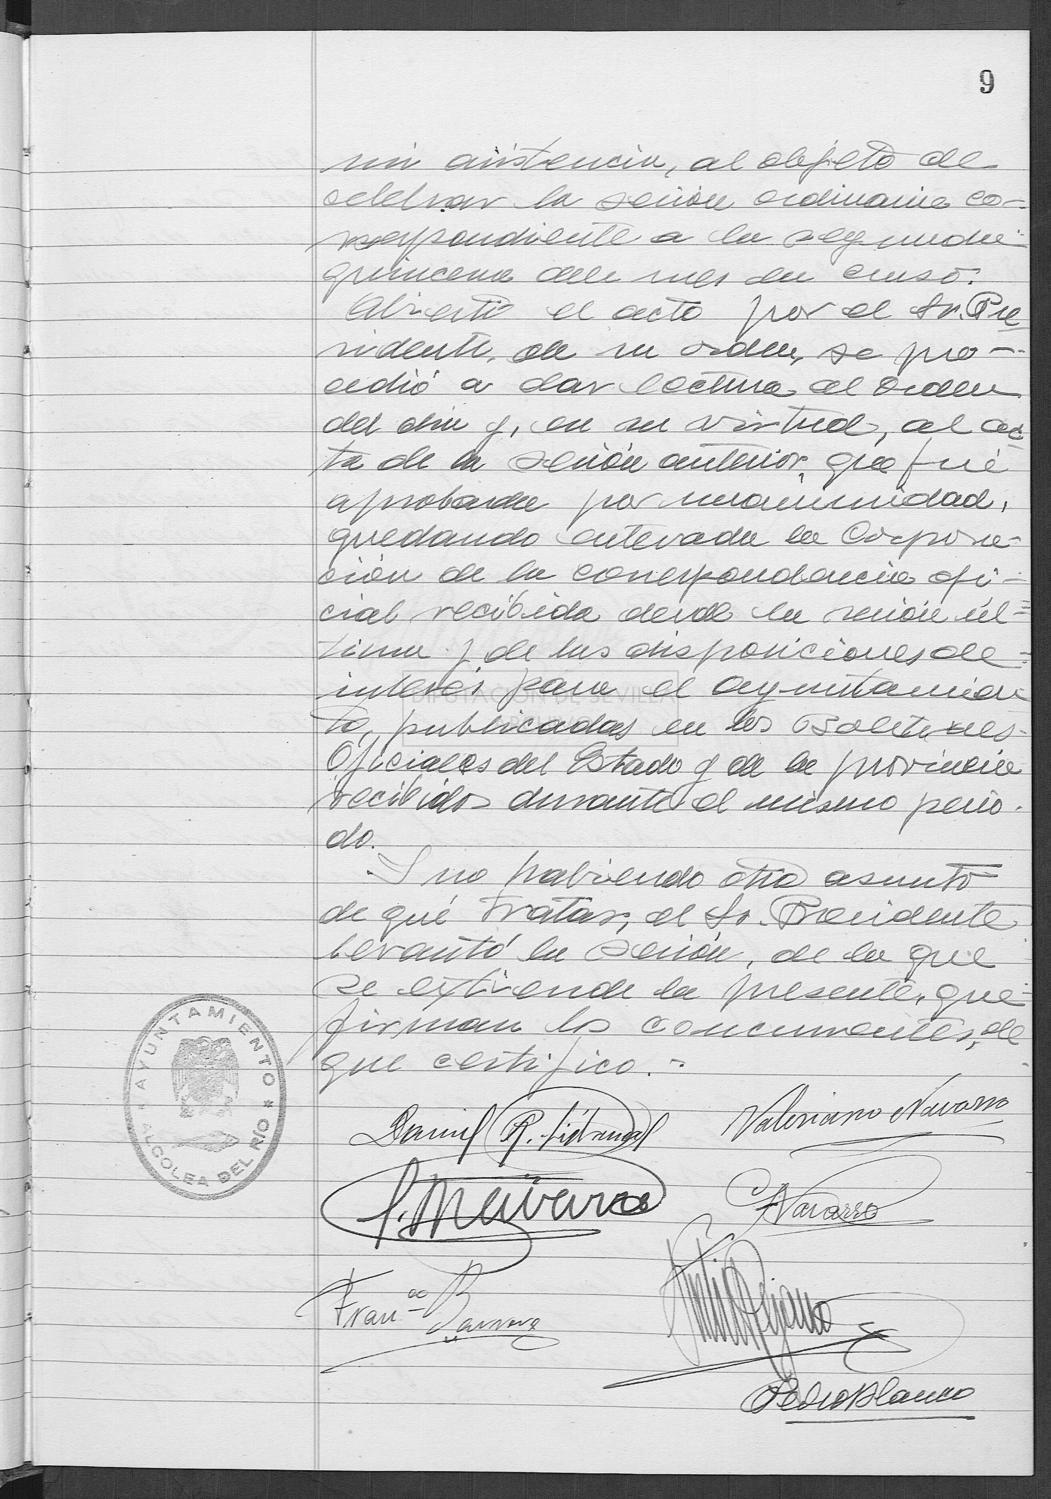 9
sin asistencia, al objeto de
celebrar la sesión ordinaria co-
rrespondiente a la segunda
quincena del mes en curso.
Abierto el acto por el Sr. Pre
sidente, de su orden, se pro-
cedió a dar lectura al orden
del día y, en su virtud, al ac
ta de la sesión anterior, que fué
aprobada por unanimidad,
quedando enterada la Corpora-
ción de la correspondencia ofi-
cial recibida desde la sesión úl-
tima y de las disposiciones de
interés para el ayuntamien
to, publicadas en los Boletines
Oficiales del Estado y de la provincia
recibidos durante el mismo perío-
do.
Y no habiendo otro asunto
de qué tratar, el Sr. Presidente
levantó la sesión, de la que
se extiende la presente, que
firman los concurrentes, de
que certifico.-
AYUNTAMIENTO
ALCOLEA DEL RÍO
DIPUTACIÓN DE SEVILLA
Daniel R.
Valeriano Navarro
Navarro
Fran.co
Pedro Blanco